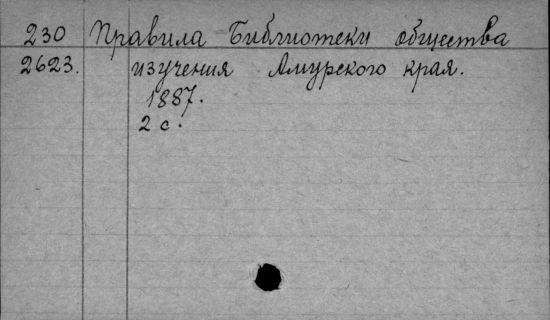 230 Правила Библиотеки общества
2623. изучения Амурского края.
1887.
2 с.